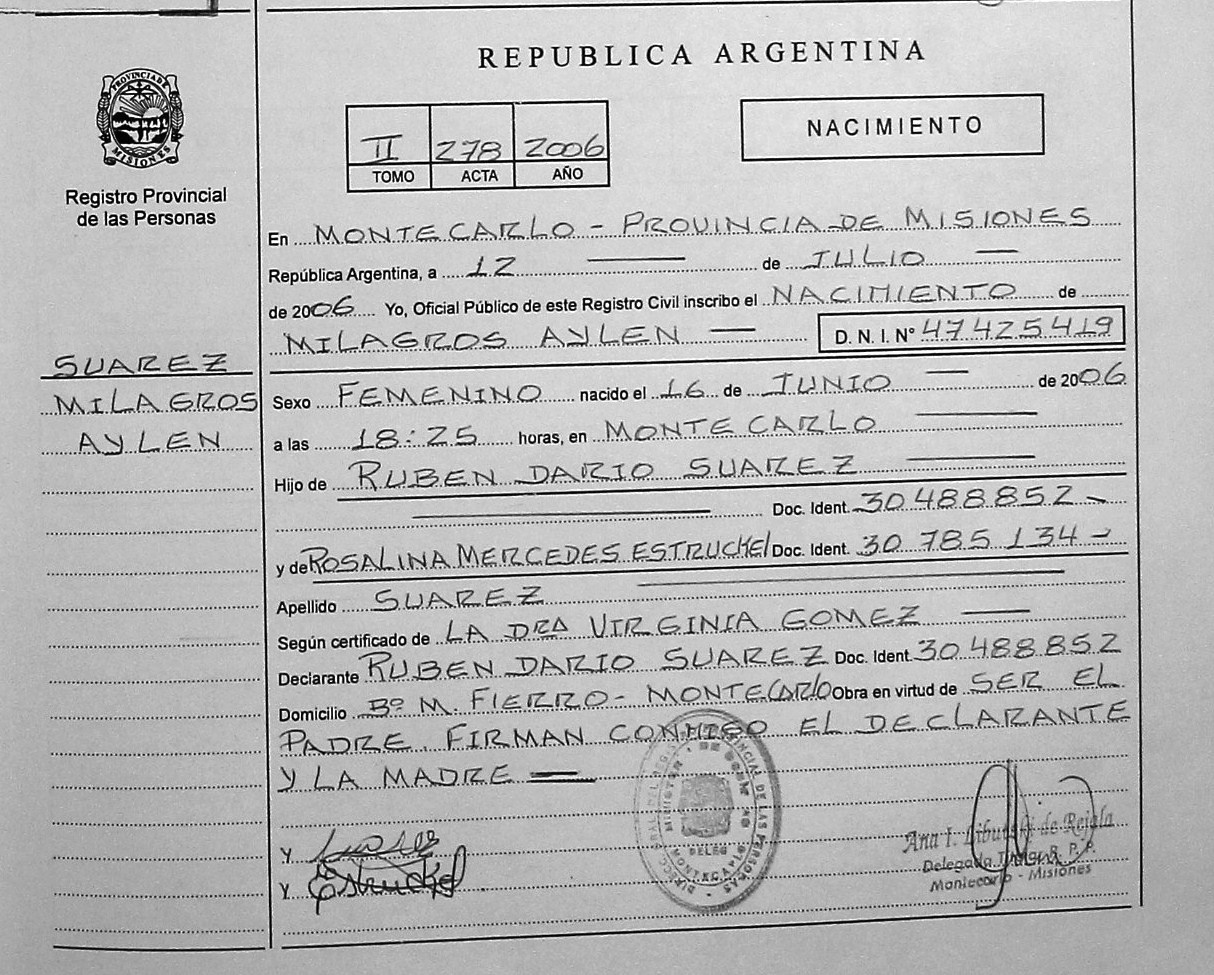 REPUBLICA ARGENTINA
PROVINCIA DE MISIONES
Registro Provincial
de las Personas
II 278 2006
TOMO ACTA AÑO
NACIMIENTO
En MONTECARLO - PROVINCIA DE MISIONES
República Argentina, a 12 de JULIO
de 2006 Yo, Oficial Público de este Registro Civil inscribo el NACIMIENTO de
MILAGROS AYLEN D. N. I. Nº 47425419
SUAREZ
MILAGROS
AYLEN
Sexo FEMENINO nacido el 16 de JUNIO de 2006
a las 18:25 horas, en MONTECARLO
Hijo de RUBEN DARIO SUAREZ
Doc. Ident. 30488852
y de ROSALINA MERCEDES ESTRUCKEL Doc. Ident. 30785134
Apellido SUAREZ
Según certificado de LA DRA VIRGINIA GOMEZ
Declarante RUBEN DARIO SUAREZ Doc. Ident. 30488852
Domicilio Bº M. FIERRO - MONTECARLO Obra en virtud de SER EL
PADRE. FIRMAN CONMIGO EL DECLARANTE
Y LA MADRE
Y
Y Estruckel
Ana I. de Rejala
Delegada R. P. P.
Montecarlo - Misiones